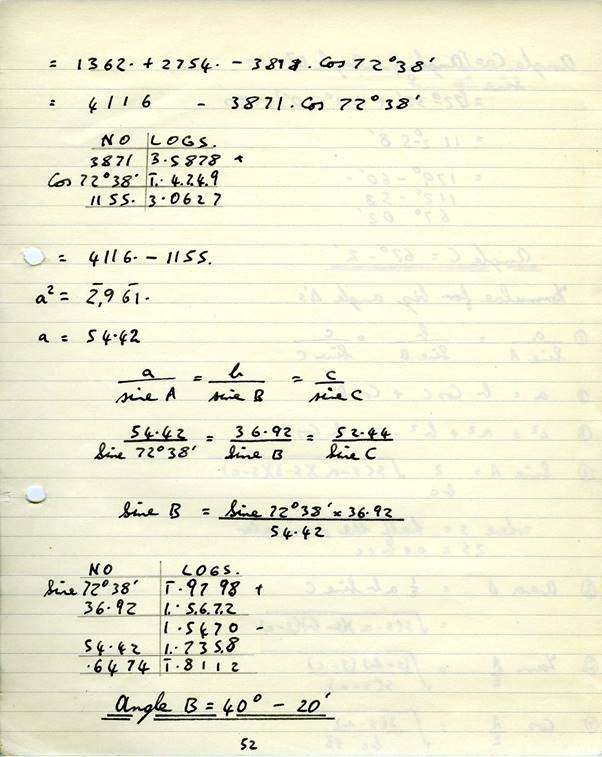 = 1362. + 2754. - 3871. Cos 72°38'
= 4116 - 3871. Cos 72°38'
NO LOGS.
3871 3.5878 +
Cos 72°38' 1̄.4749
1155. 3.0627
= 4116. - 1155.
a² = 2,961.
a = 54.42
a/sine A = b/sine B = c/sine C
54.42/Sine 72°38' = 36.92/Sine B = 52.44/Sine C
Sine B = Sine 72°38' × 36.92
54.42
NO LOGS.
Sine 72°38' 1̄.9798 +
36.92 1.5672
1.5470 -
54.42 1.7358
.6474 1̄.8112
Angle B = 40° - 20'
52